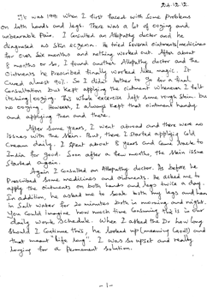 20.12.12
It's was 1993 when I first faced with some problems
on both hands and legs. There was a lot of itching and
unbearable Pain. I Consulted an Allopathy doctor and he
diagnosed as Skin Eczema. He tried several ointments/medicines
for over six months and nothing worked out. After about
8 months or so, I found another Allopathy doctor and the
Ointments he Prescribed finally worked like magic. It
cured almost. So I didn't bother to go for a final
Consultation but kept applying the ointment whenever I felt
itching/scaling. This whole exercise left some rough skin but
no itching. However, I always kept that ointment handy
and applying then and there.
After some years, I went abroad and there was no
issues with the Skin. But, there I started applying Cold
Cream daily. I spent about 8 years and Came back to
India for good. Soon after a few months, the Skin issue
Started again.
Again I Consulted an Allopathy doctor. As before he
Prescribed some medicines and ointments. He asked me to
apply the ointments on both hands and legs twice a day.
In addition, he asked me to soak both my legs and hands
in Salt water for 20 minutes both in morning and night.
You Could imagine how much time Consuming this is in our
daily work Schedule. When I asked the Dr how long
Should I Continue this, he looked up (meaning God) and
that meant "life long". I was so upset and really
longing for a Permanent Solution.
-1-